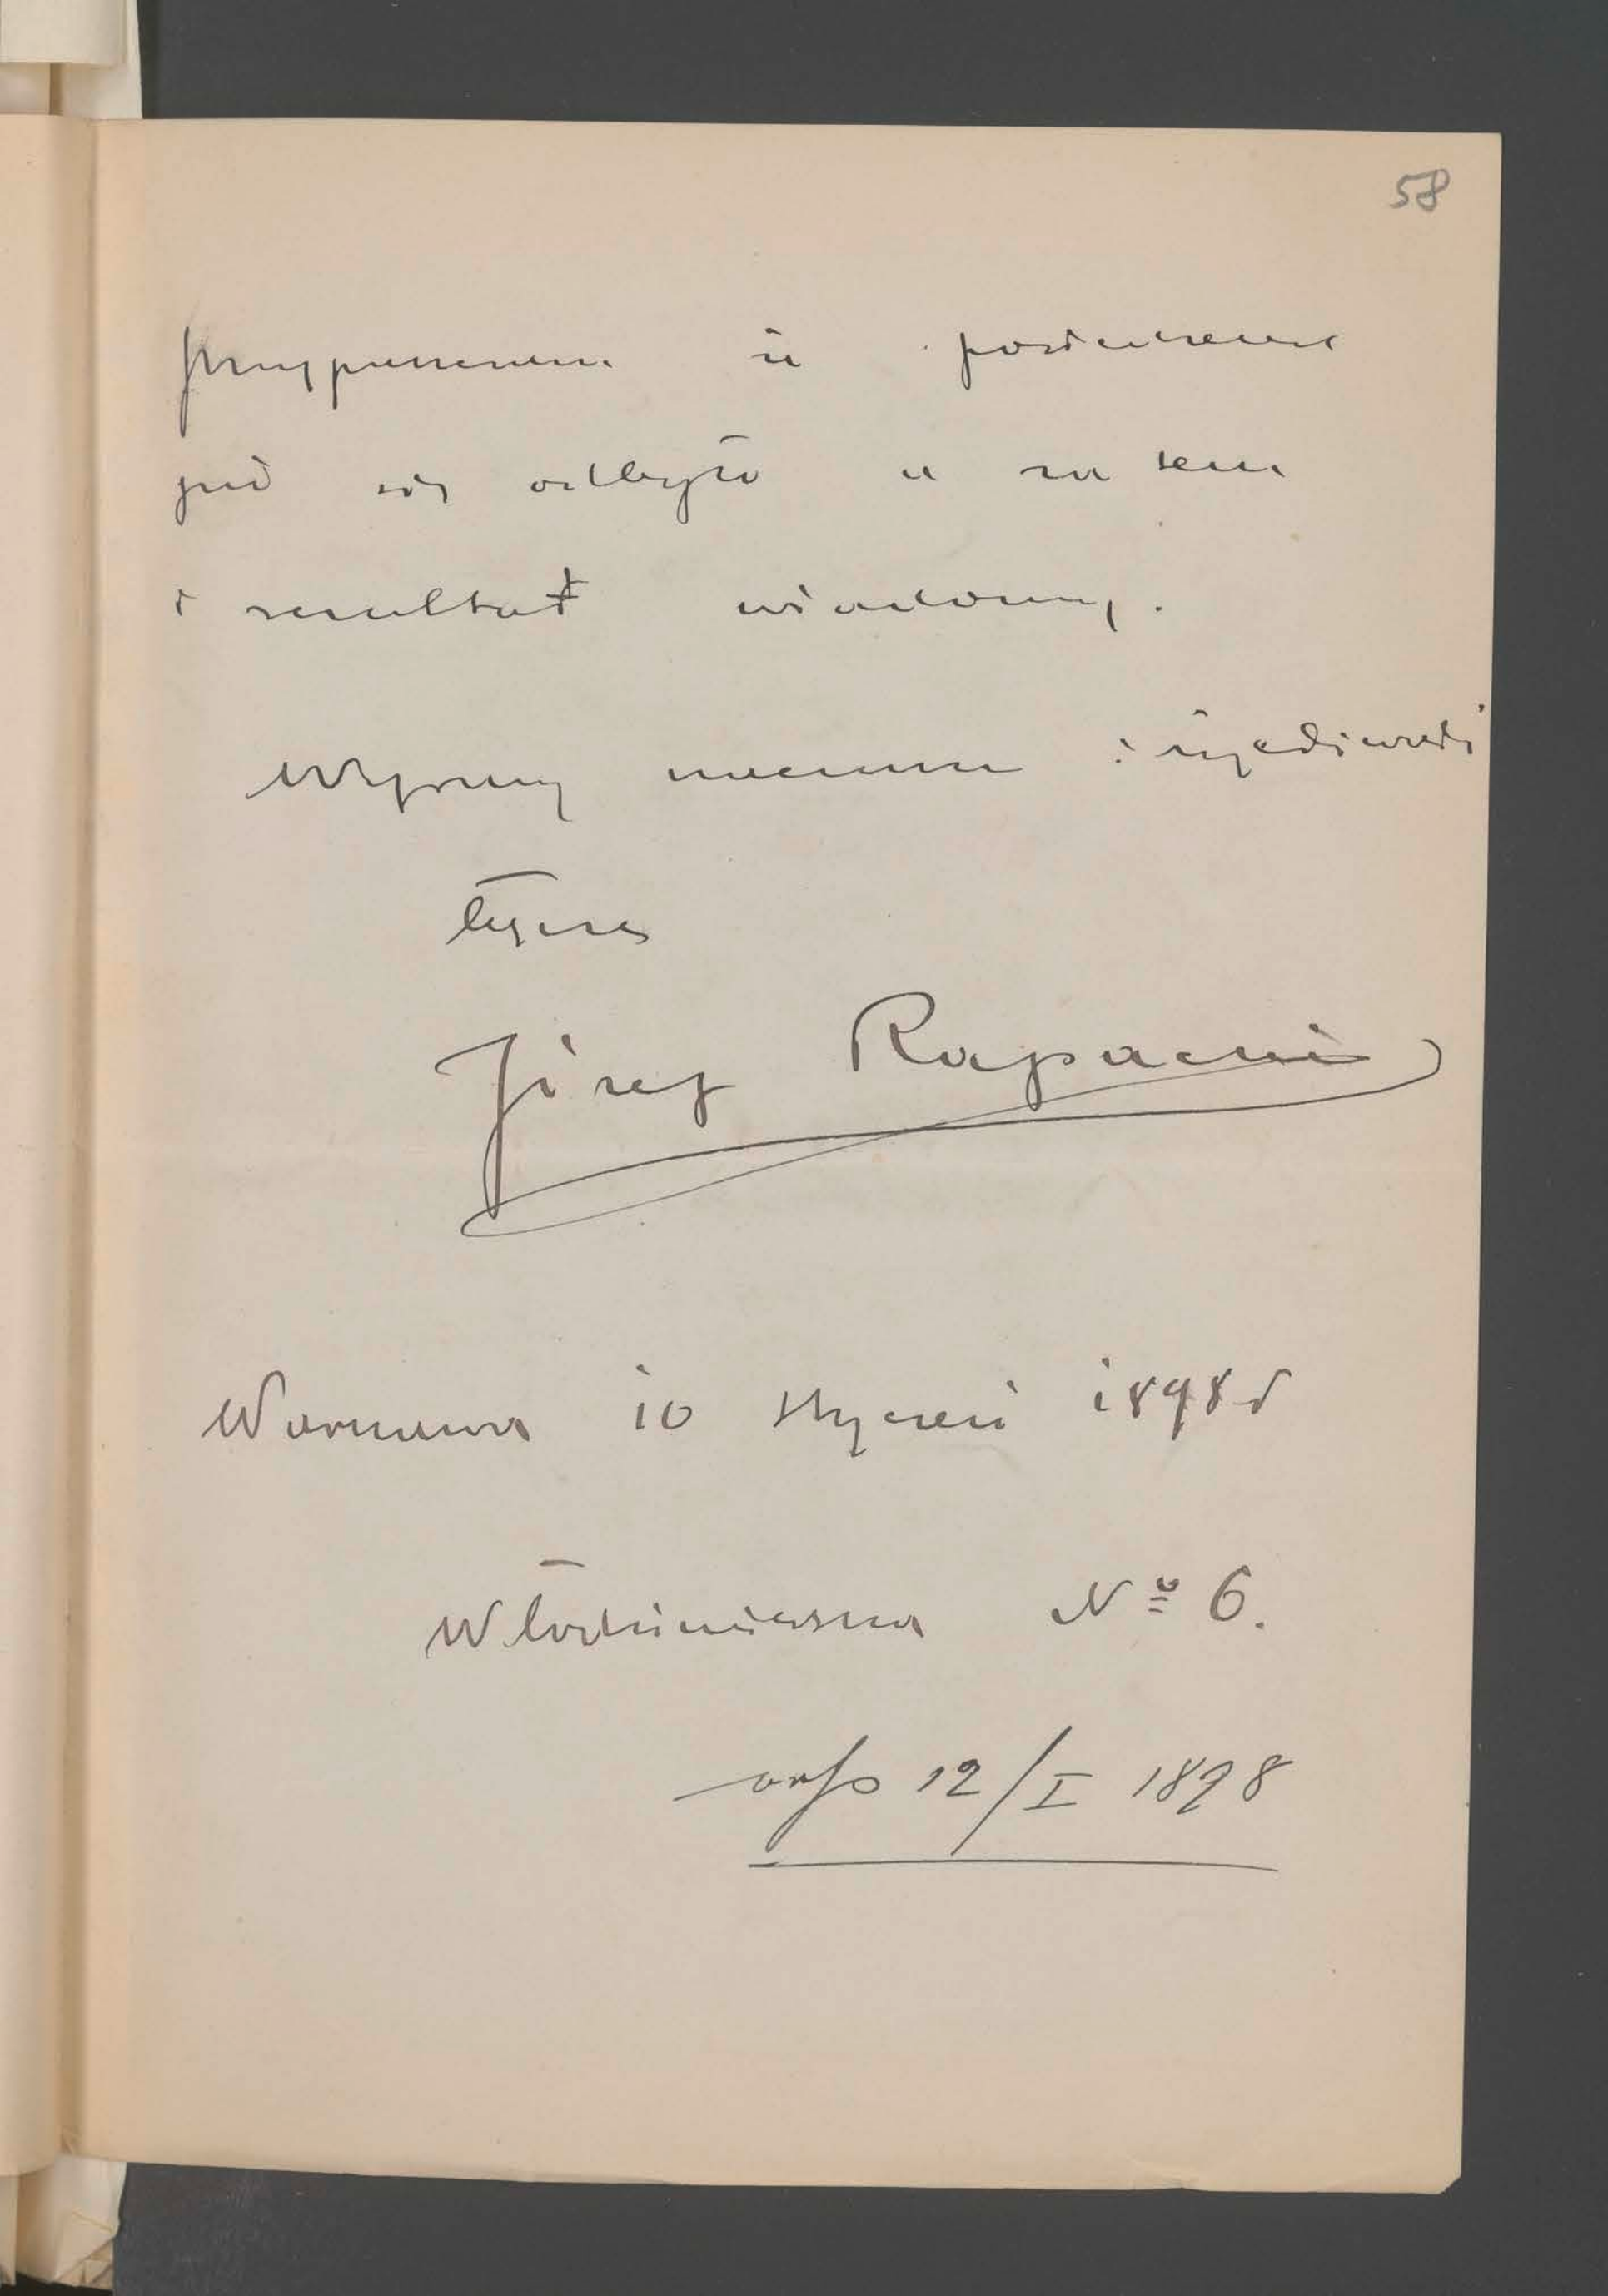 58
przypuszczam iż posiedzenie
już się odbyło a za tem
i rezultat wiadomy.
Wyrazy uszanowania i życzliwości
łączę
Józef Rapacki
Warszawa 10 styczeń 1898 r
Włodzimierska № 6.
12/I 1898